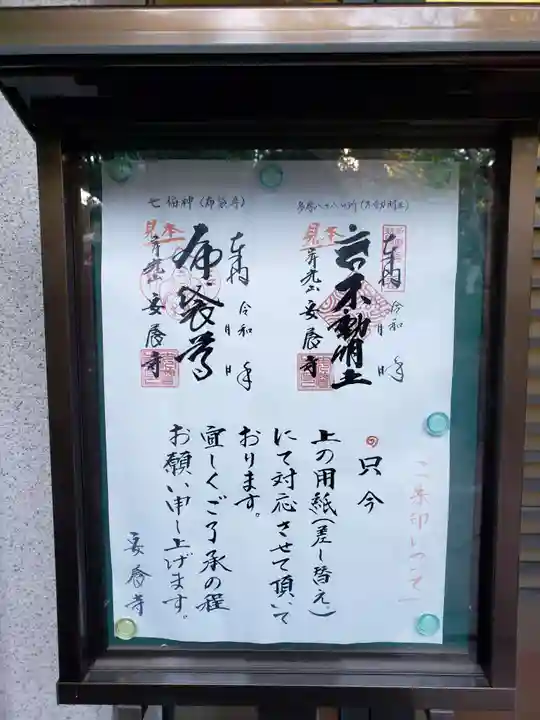 多摩八十八ヶ所(不動明王)
見本
奉納
令和
月
日
不動明王
安養寺
七福神(布袋尊)
見本
奉納
令和
月
日
布袋尊
安養寺
ご朱印について
只今
上の用紙(差し替え)
にて対応させて頂いて
おります。
宜しくご了承の程
お願い申し上げます。
安養寺